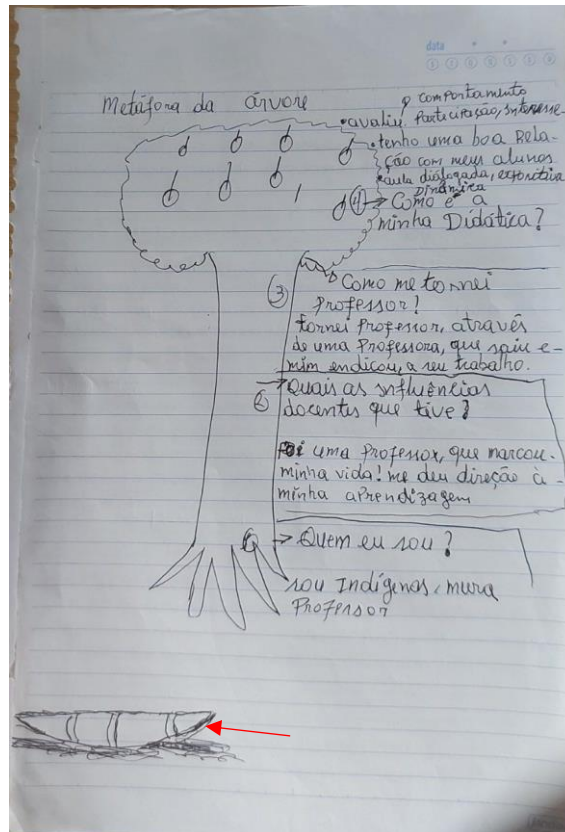 data
Metáfora da árvore
comportamento
• avaliu, Participação, interesse
• tenho uma boa Rela-
ção com meus alunos.
• aula dialogada, expositiva
Dinâmica
④ → Como é a
minha Didática?
③ Como me tornei
Professor?
tornei Professor, através
de uma Professora, que saiu e-
mim endicou, a seu trabalho.
② → Quais as influências
docentes que tive?
Foi uma Professor, que marcou-
minha vida! me deu direção à-
minha aprendizagem
→ Quem eu sou?
sou Indígenas, mura
Professor